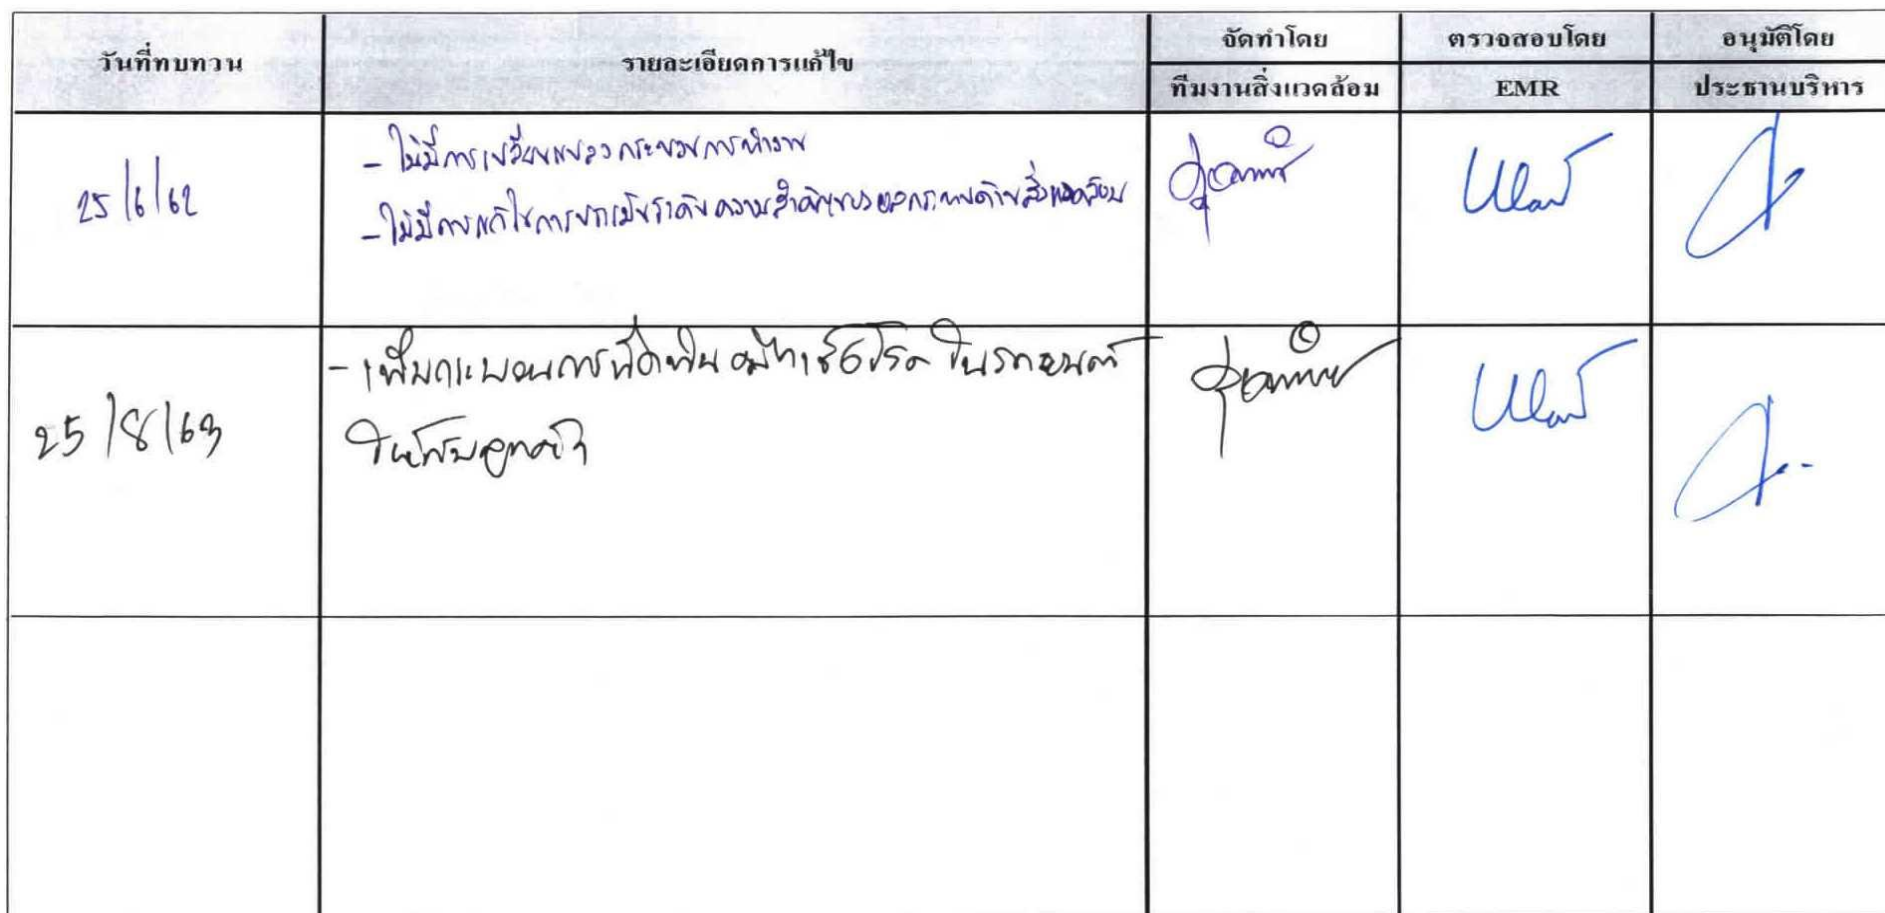 วันที่ทบทวน
รายละเอียดการแก้ไข
จัดทำโดย
ตรวจสอบโดย
อนุมัติโดย
ทีมงานสิ่งแวดล้อม
EMR
ประธานบริหาร
25/6/62
- ไม่มีการเปลี่ยนแปลงกระบวนการทำงาน
- ไม่มีการแก้ไขการประเมินระดับความสำคัญของผลกระทบด้านสิ่งแวดล้อม
25/8/63
- เพิ่มกระบวนการฉีดพ่น ฆ่าเชื้อโรค ในรถยนต์
ให้กับลูกค้า